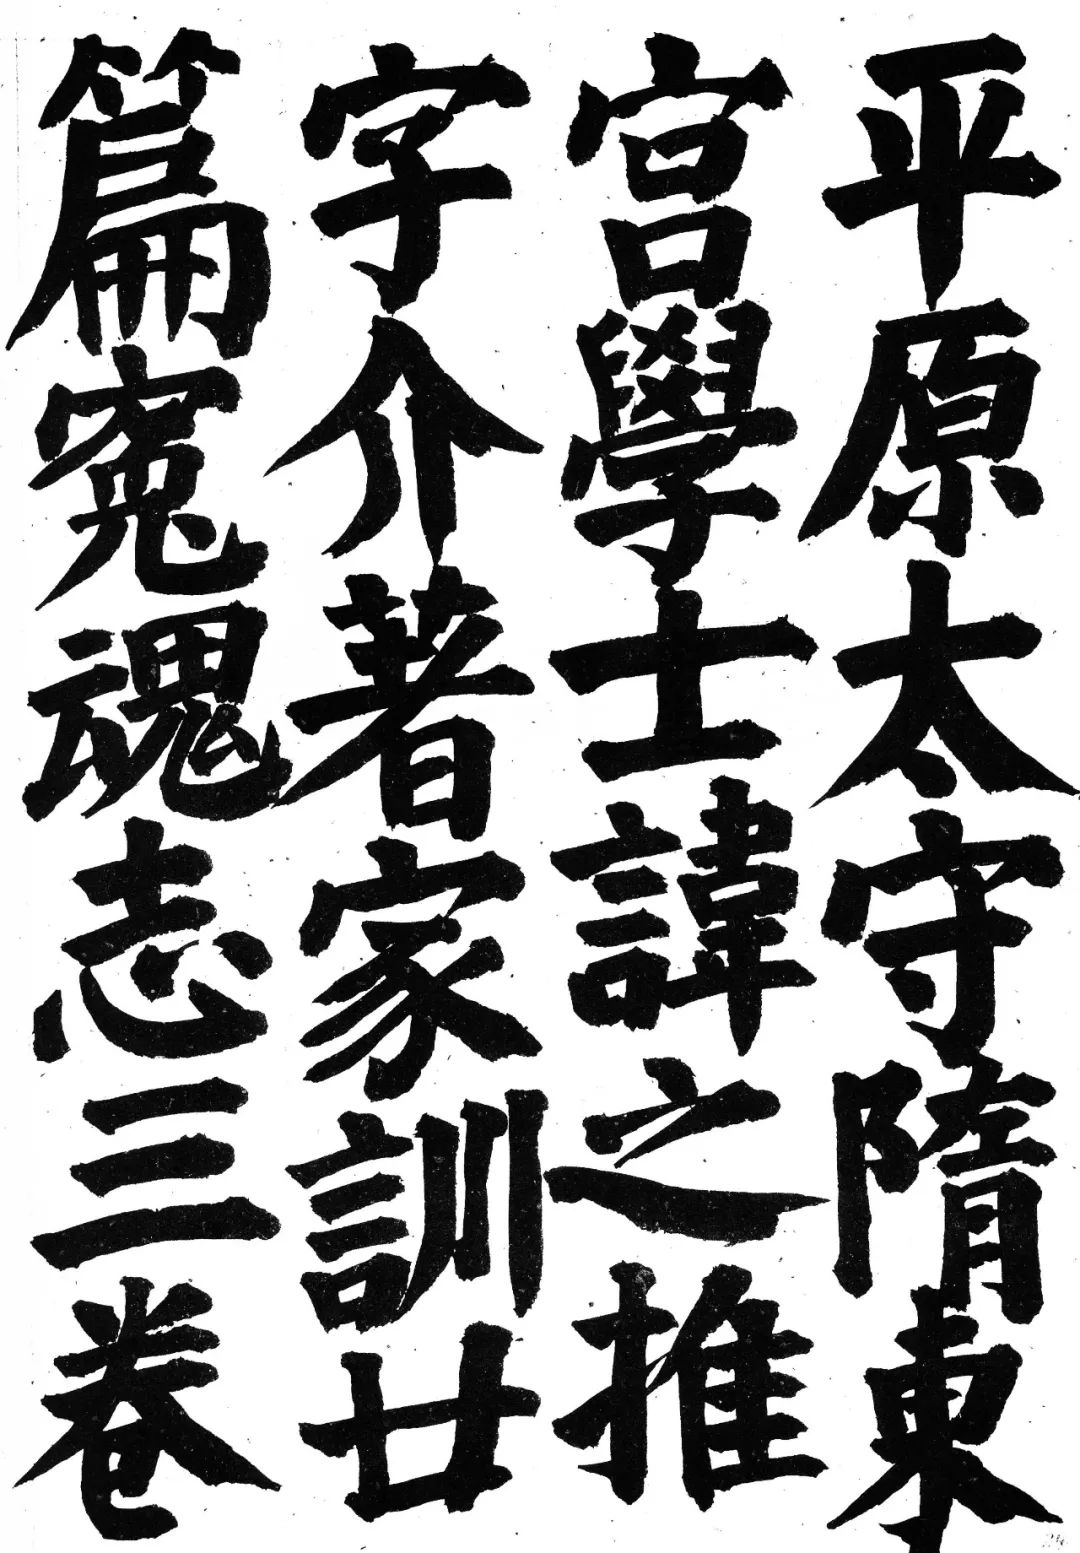 平原太守隋東
宮學士諱之推
字介著家訓廿
篇冤魂志三卷